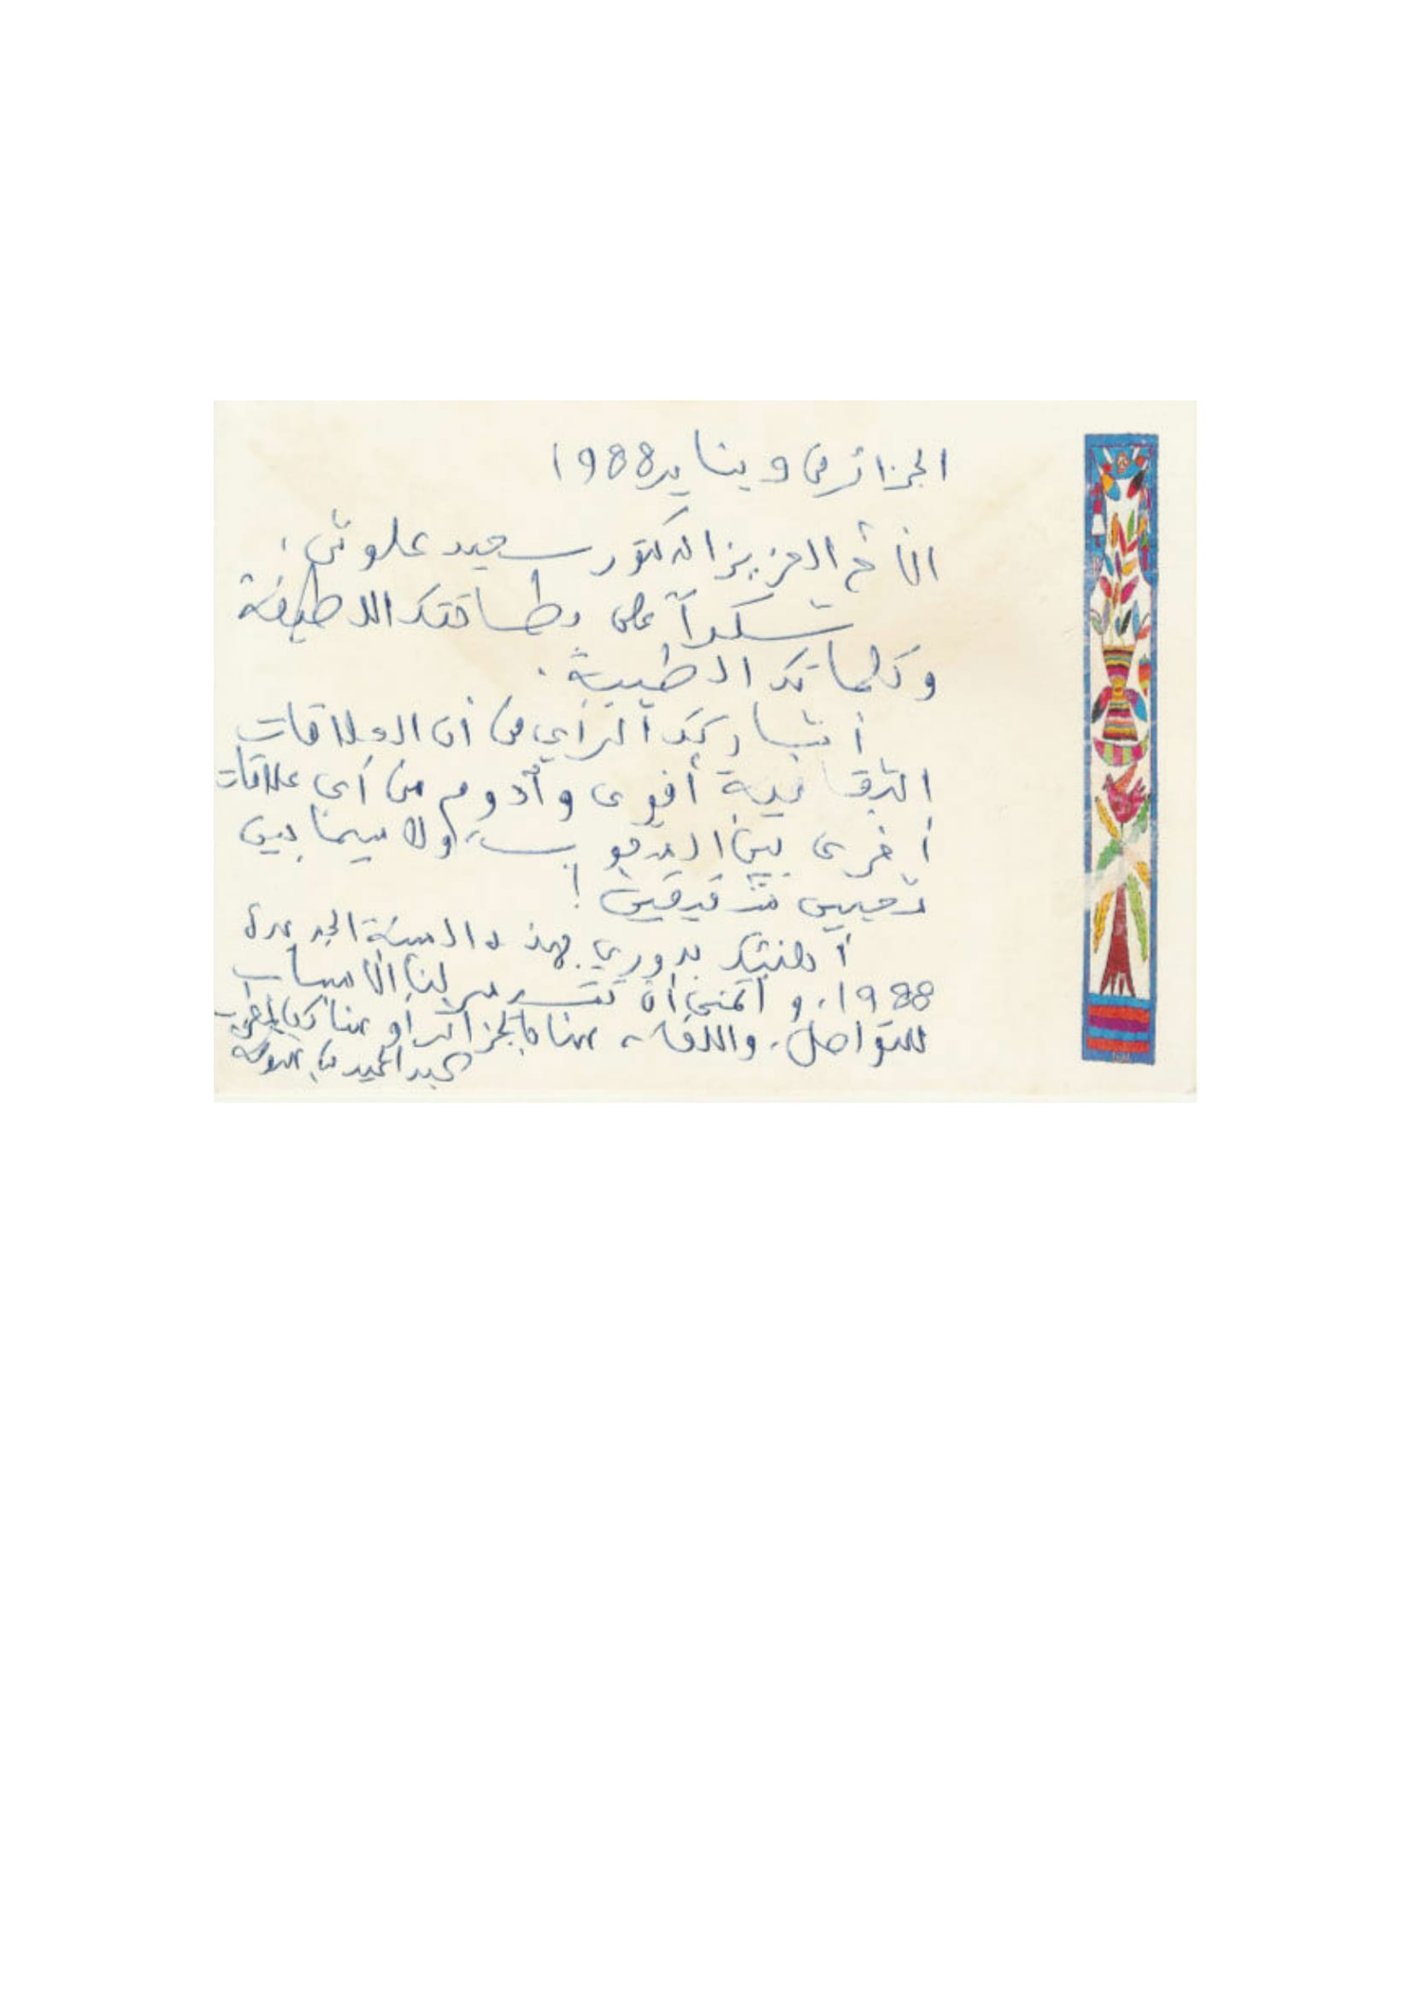 الجزائر في 9 يناير 1988
الأخ العزيز الدكتور سعيد علوش،
شكراً على بطاقتك اللطيفة
وكلماتك الطيبة.
أشاركك الرأي في أن العلاقات
الثقافية أقوى وأدوم من أي علاقات
أخرى بين الشعوب، ولا سيما بين
شعبين شقيقين!
أهنئك بدوري بهذه السنة الجديدة
1988، وأتمنى أن تتيسر لنا الأسباب
للتواصل، واللقاء هنا بالجزائر أو هناك بالمغرب
عبد الحميد بن هدوقة